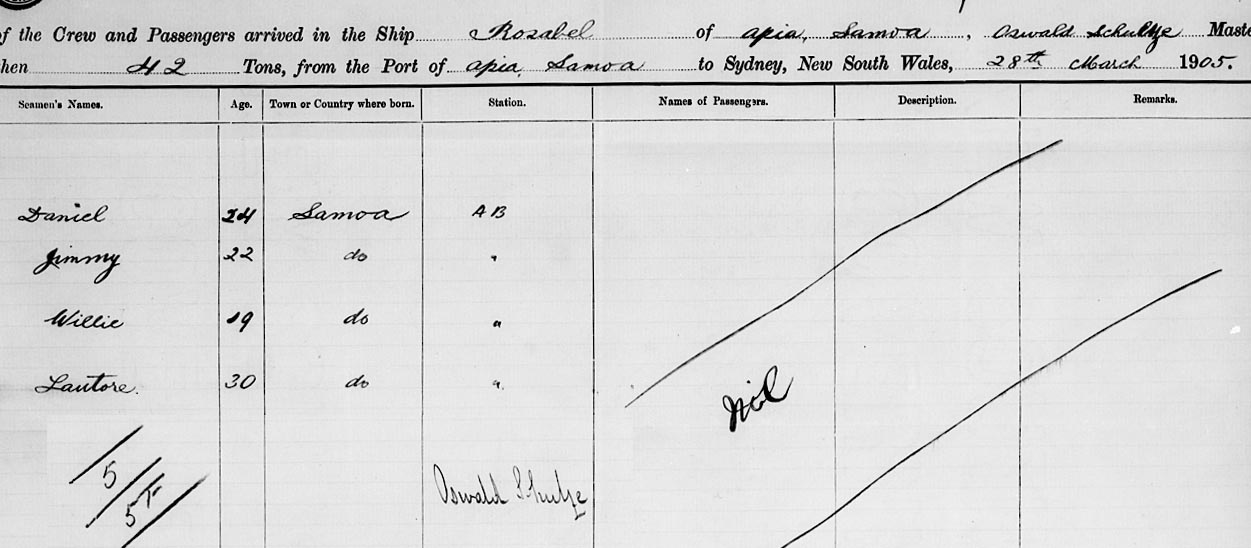 of the Crew and Passengers arrived in the Ship Rosabel of apia, Samoa, Oswald Schultze Maste
hen 42 Tons, from the Port of apia, Samoa to Sydney, New South Wales, 28th March 1905.
Seamen's Names. Age. Town or Country where born. Station. Names of Passengers. Description. Remarks.
Daniel 24 Samoa AB
Jimmy 22 do "
Willie 19 do "
Lautore. 30 do "
nil
5
5 T
Oswald Schultze